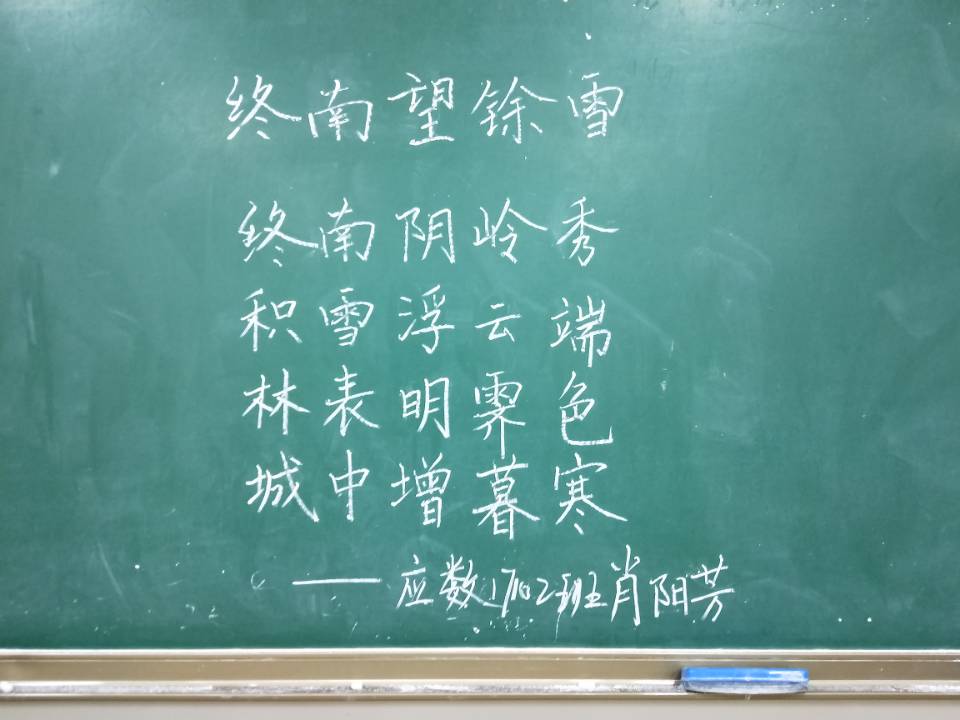 终南望馀雪
终南阴岭秀
积雪浮云端
林表明霁色
城中增暮寒
——应数1702班肖阳芳